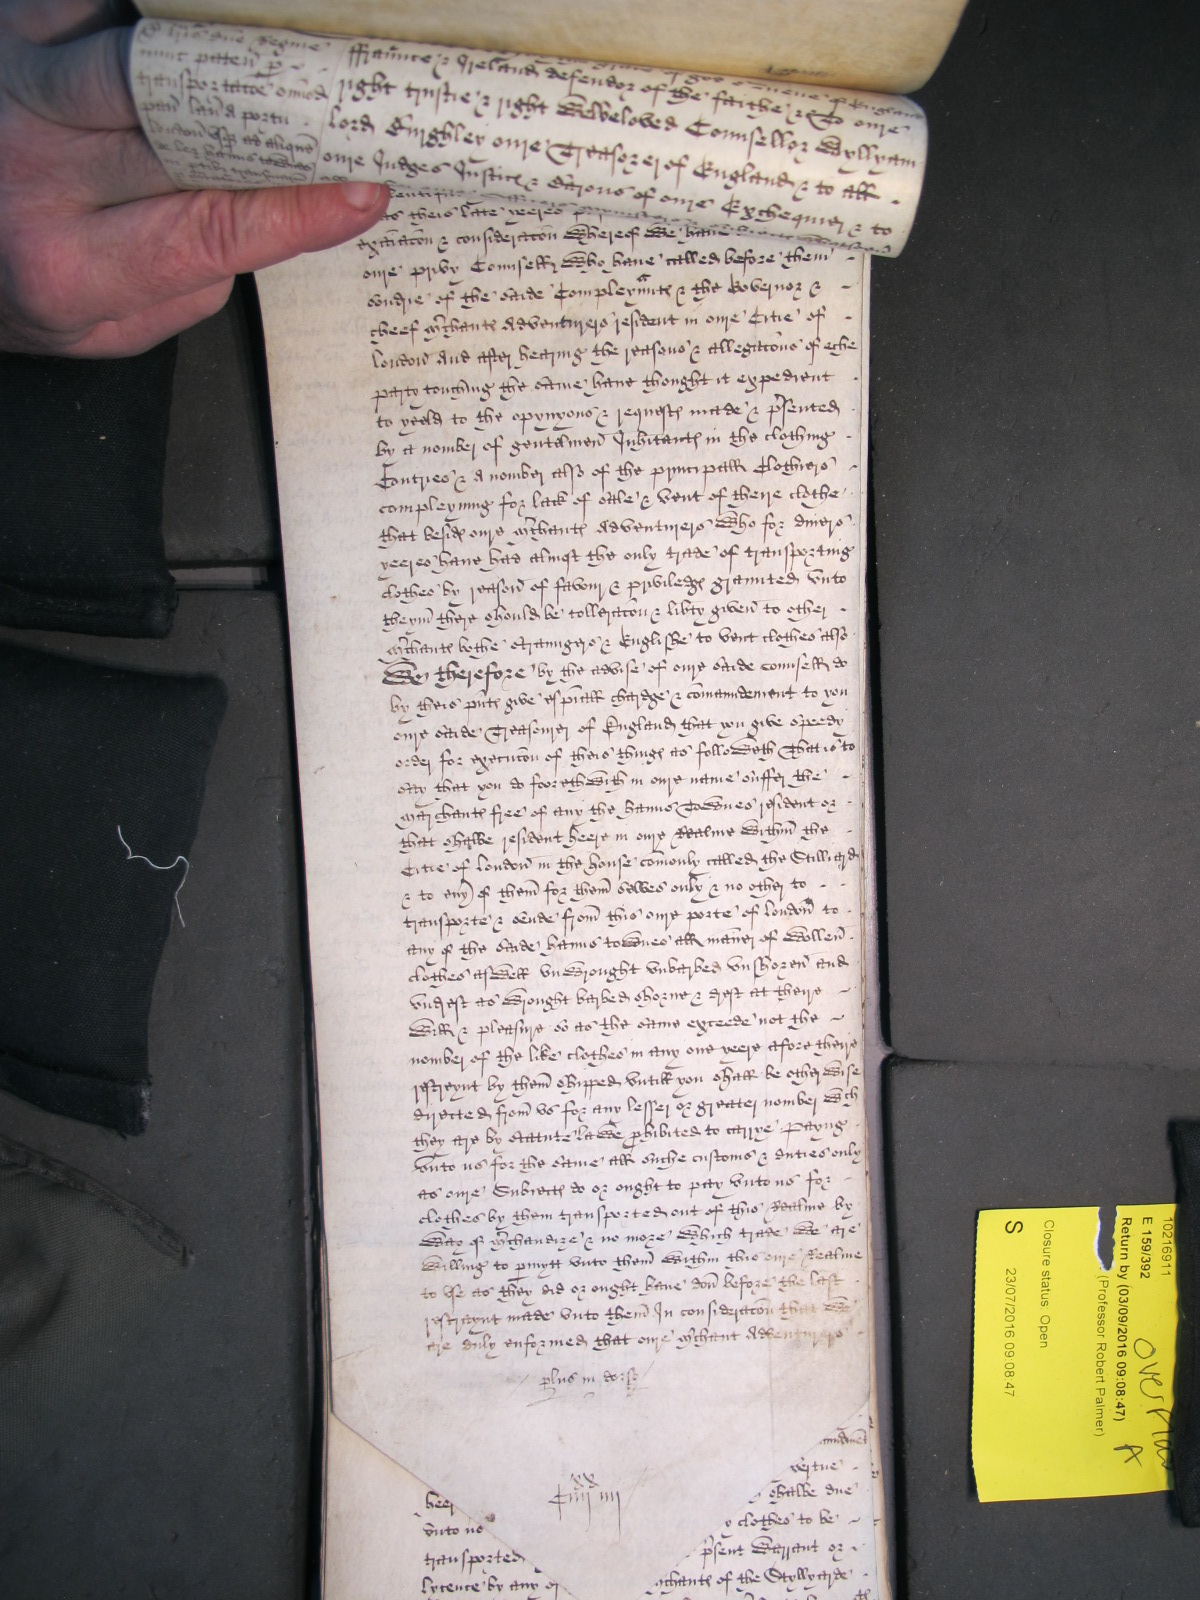 nunc paten p
ffraunce & Ireland defendor of the faithe &c To oure
transportacōe omīod
right trustie & right Welbeloved Counsellor Wyllyam
pañ lañd portu
Lord Burghley oure Treasorer of England & to all
london
oure Judges Justicꝭ & Barons of oure Exchequier & to
as theis late yeeres
exaīacōn & consideracōn Whereof We have
oure privy Counsell Who have called before them
sundrie of the saide Compleynantꝭ & the Governor &
cheef m̄chantꝭ Adventurers resident in oure Citie of
londoñ And after hearing the reasons & allegacōns of eche
party touching the same have thought it expedient
to yeeld to the opynyons & requestꝭ made & p̄sented
by a nomber of gentelmen Inhītantꝭ in the clothing
Contries & a nomber also of the principall Clothiers
compleyning for lack of sale & vent of theire clothe
that besidꝭ oure m̄chantꝭ Adventurers Who for divers
yeeres have had almost the only trade of transporting
clothes by reason of favour & priviledgꝭ graunted vnto
theym there should be tolleracōn & lib̄ty given to other
m̄chantꝭ bothe straungers & Englishe to vent clothes also
We therefore by the advise of oure saide counsell do
by theis p̄ntꝭ give esp̄iall chardge & com̄aundement to you
oure saide Treasourer of England that you give speedy
order for execucōn of theis thingꝭ as followeth That is to
say that you do foorthwith in oure name suffer the
marchantꝭ free of any the hauns Townes resident or
that shalbe resident heere in oure Realme Within the
Citie of londoñ in the house comonly called the Stilliard
& to eny of them for them selves only & no other to
transporte & sende from this oure porte of londoñ to
any of the saide hauns townes all maner of Wollen
clothes asWell vnWrought vnbarbed vnshoren and
vndrest as Wrought barbed shorne & drest at theire
Will & pleasure so as the same exceede not the
nomber of the like clothes in any one yeere afore theire
restreynt by them shipped vntill you shall be otherwise
directed from vs for any lesser or greater nomber Wch
they are by statute lawe p̄hibited to carrye Payng
vnto us for the same all suche customs & duties only
as oure Subiectꝭ do or ought to pay vnto us for
clothes by them transported out of this Realme by
Way of m̄chandize & no more Which trade We are
Willing to p̄mytt vnto them Within this oure Realme
to vse as they did or ought have don before the last
restraynt made vnto them In consideracōn that We
are duly enformed that oure m̄chant Adventurers
plus in dorso
xx
Ciiij iiij
vertue
heer
shalbe due
vnto us
clothes to be
transported
p̄sent Warrant or
lycence by any
chantꝭ of the Styllyarde
10216911
E 159/392
Return by (03/09/2016 09:08:47)
(Professor Robert Palmer)
Closure status: Open
S
23/07/2016 09:08:47
A